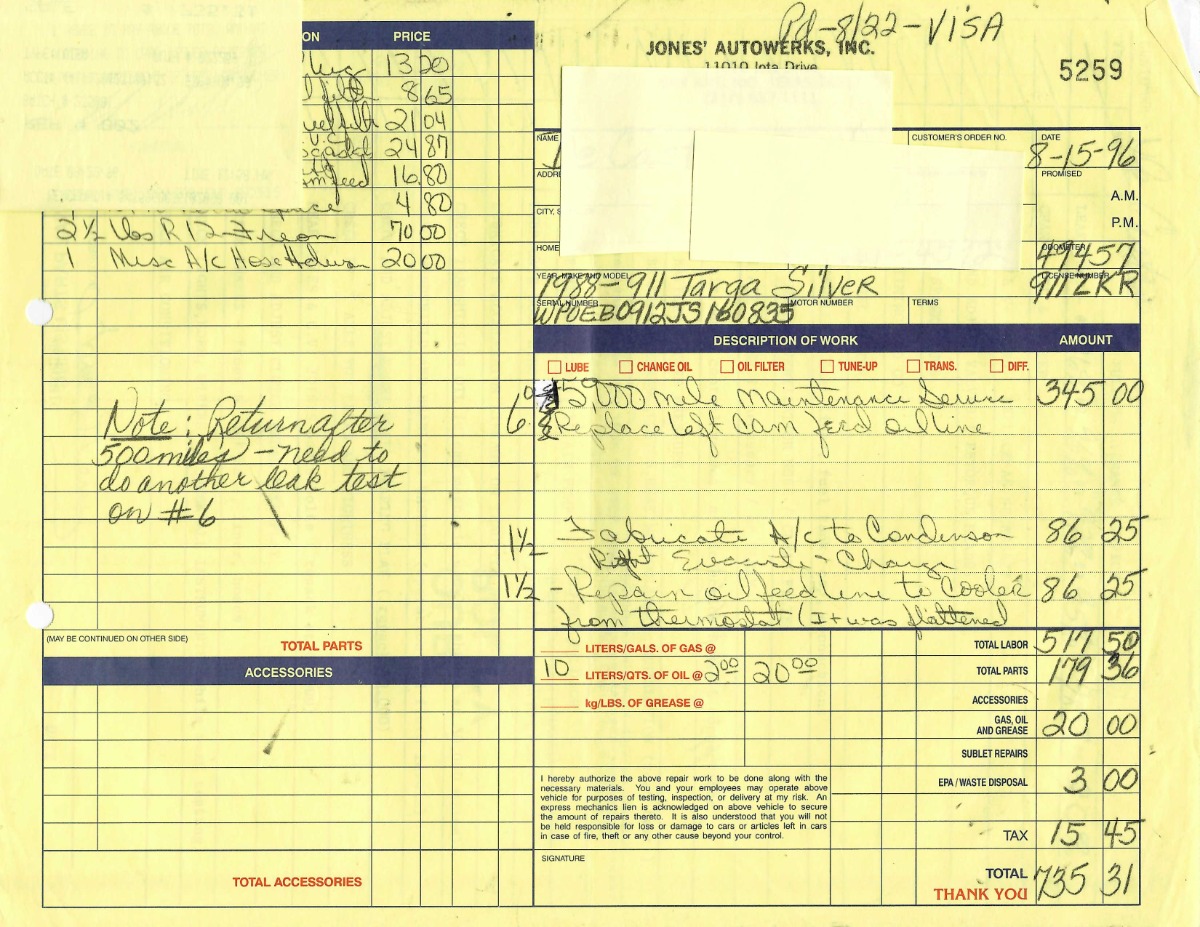 Pd-8/22-VISA
JONES' AUTOWERKS, INC.
11010 Iota Drive
5259
ON PRICE
13 20
8 65
21 04
24 87
feed 16 80
4 80
2 ½ lbs R 12 - Freon 70 00
1 Misc A/c Hose 20 00
Note: Return after
500 miles - need to
do another leak test
on #6
(MAY BE CONTINUED ON OTHER SIDE) TOTAL PARTS
ACCESSORIES
TOTAL ACCESSORIES
NAME
CUSTOMER'S ORDER NO.
DATE
8-15-96
ADDRE
PROMISED
A.M.
CITY, S
P.M.
HOME
ODOMETER
49457
YEAR, MAKE AND MODEL
1988-911 Targa Silver
LICENSE NUMBER
911ZKR
SERIAL NUMBER
WPOEB0912JS160835
MOTOR NUMBER
TERMS
DESCRIPTION OF WORK AMOUNT
LUBE CHANGE OIL OIL FILTER TUNE-UP TRANS. DIFF.
000 mile maintenance Service 345 00
Replace left cam feed oil line
1½ Fabricate A/c to Condensor 86 25
Evacuate - Charge
1½ - Repair oil feed line to cooler 86 25
from thermostat (It was flattened
LITERS/GALS. OF GAS @
TOTAL LABOR 517 50
10 LITERS/QTS. OF OIL @ 2 00 20 00
TOTAL PARTS 179 36
kg/LBS. OF GREASE @
ACCESSORIES
GAS, OIL
AND GREASE 20 00
SUBLET REPAIRS
EPA / WASTE DISPOSAL 3 00
TAX 15 45
TOTAL 735 31
THANK YOU
I hereby authorize the above repair work to be done along with the
necessary materials. You and your employees may operate above
vehicle for purposes of testing, inspection, or delivery at my risk. An
express mechanics lien is acknowledged on above vehicle to secure
the amount of repairs thereto. It is also understood that you will not
be held responsible for loss or damage to cars or articles left in cars
in case of fire, theft or any other cause beyond your control.
SIGNATURE